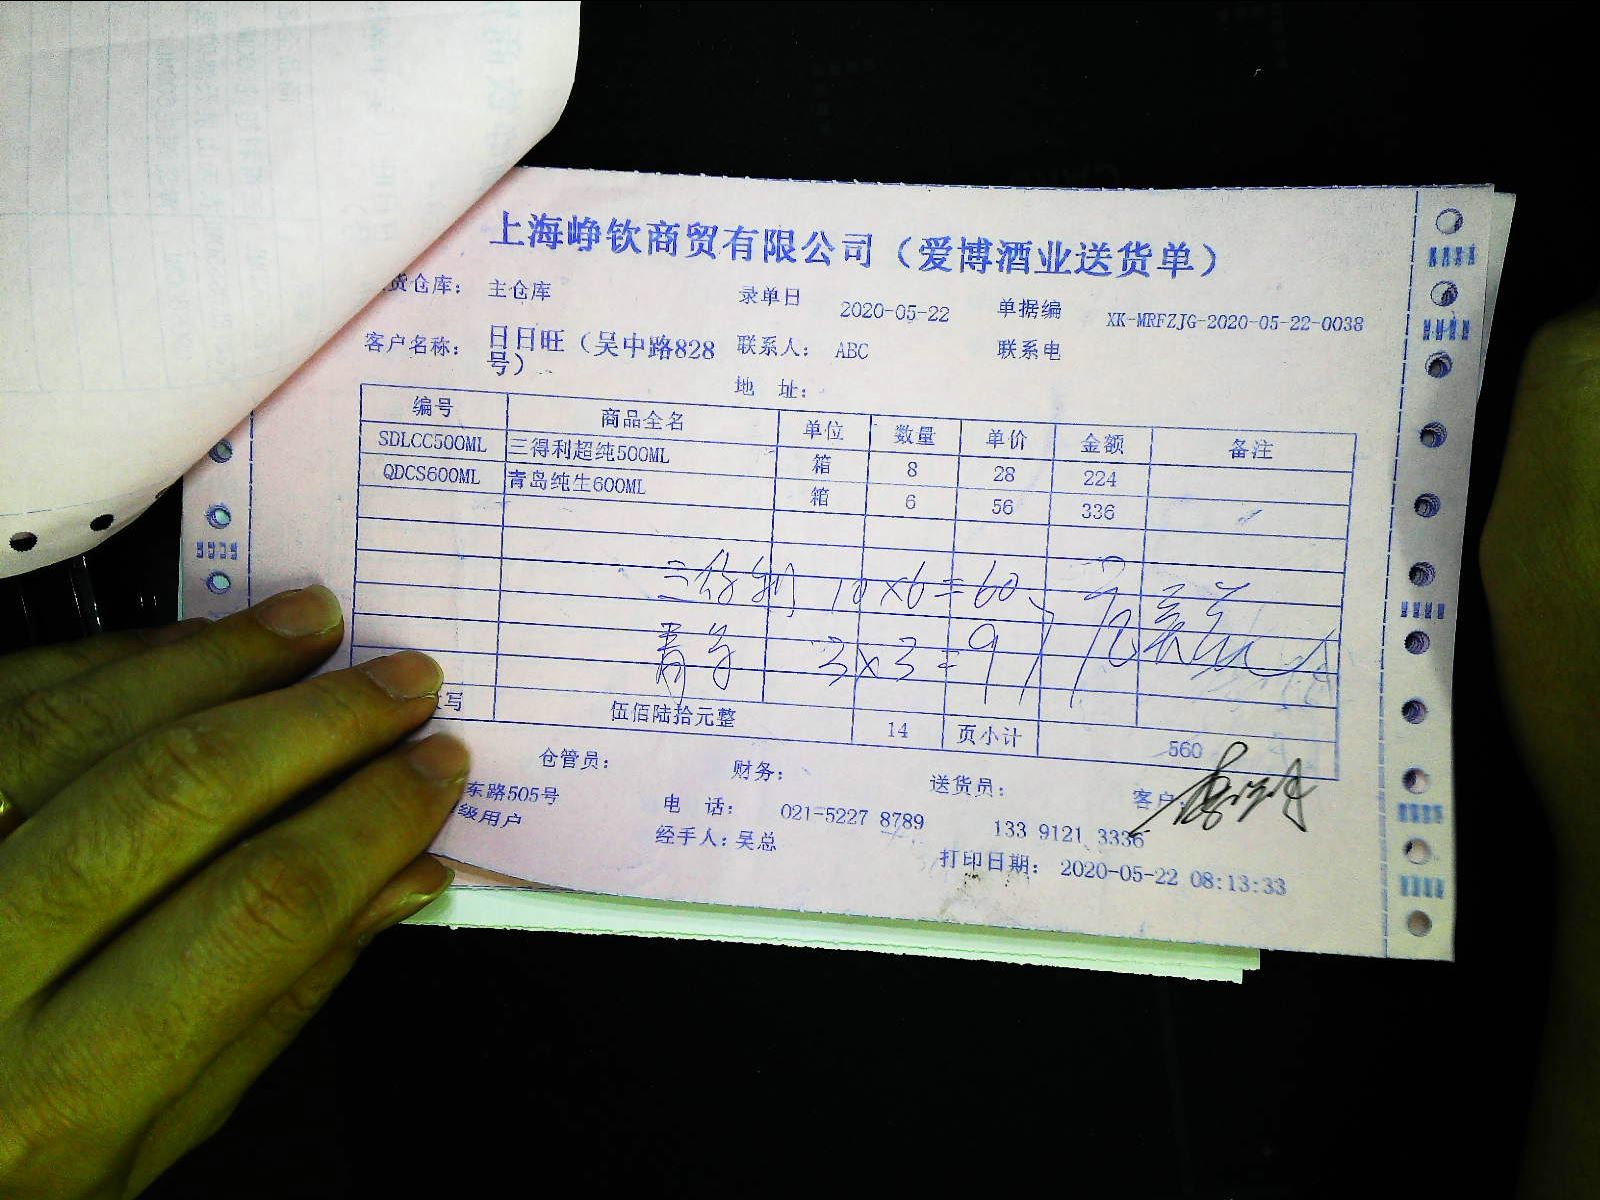 上海峥钦商贸有限公司（爱博酒业送货单）
货仓库： 主仓库 录单日 2020-05-22 单据编 XK-MRFZJG-2020-05-22-0038
客户名称： 日日旺（吴中路828号） 联系人： ABC 联系电
地 址：
编号 商品全名 单位 数量 单价 金额 备注
SDLCC500ML 三得利超纯500ML 箱 8 28 224
QDCS600ML 青岛纯生600ML 箱 6 56 336
三得利 10×6=60
青岛 3×3=9
写 伍佰陆拾元整 14 页小计 560
仓管员： 财务： 送货员： 客户：
东路505号 电 话： 021-5227 8789 133 9121 3336
级用户 经手人：吴总 打印日期： 2020-05-22 08:13:33